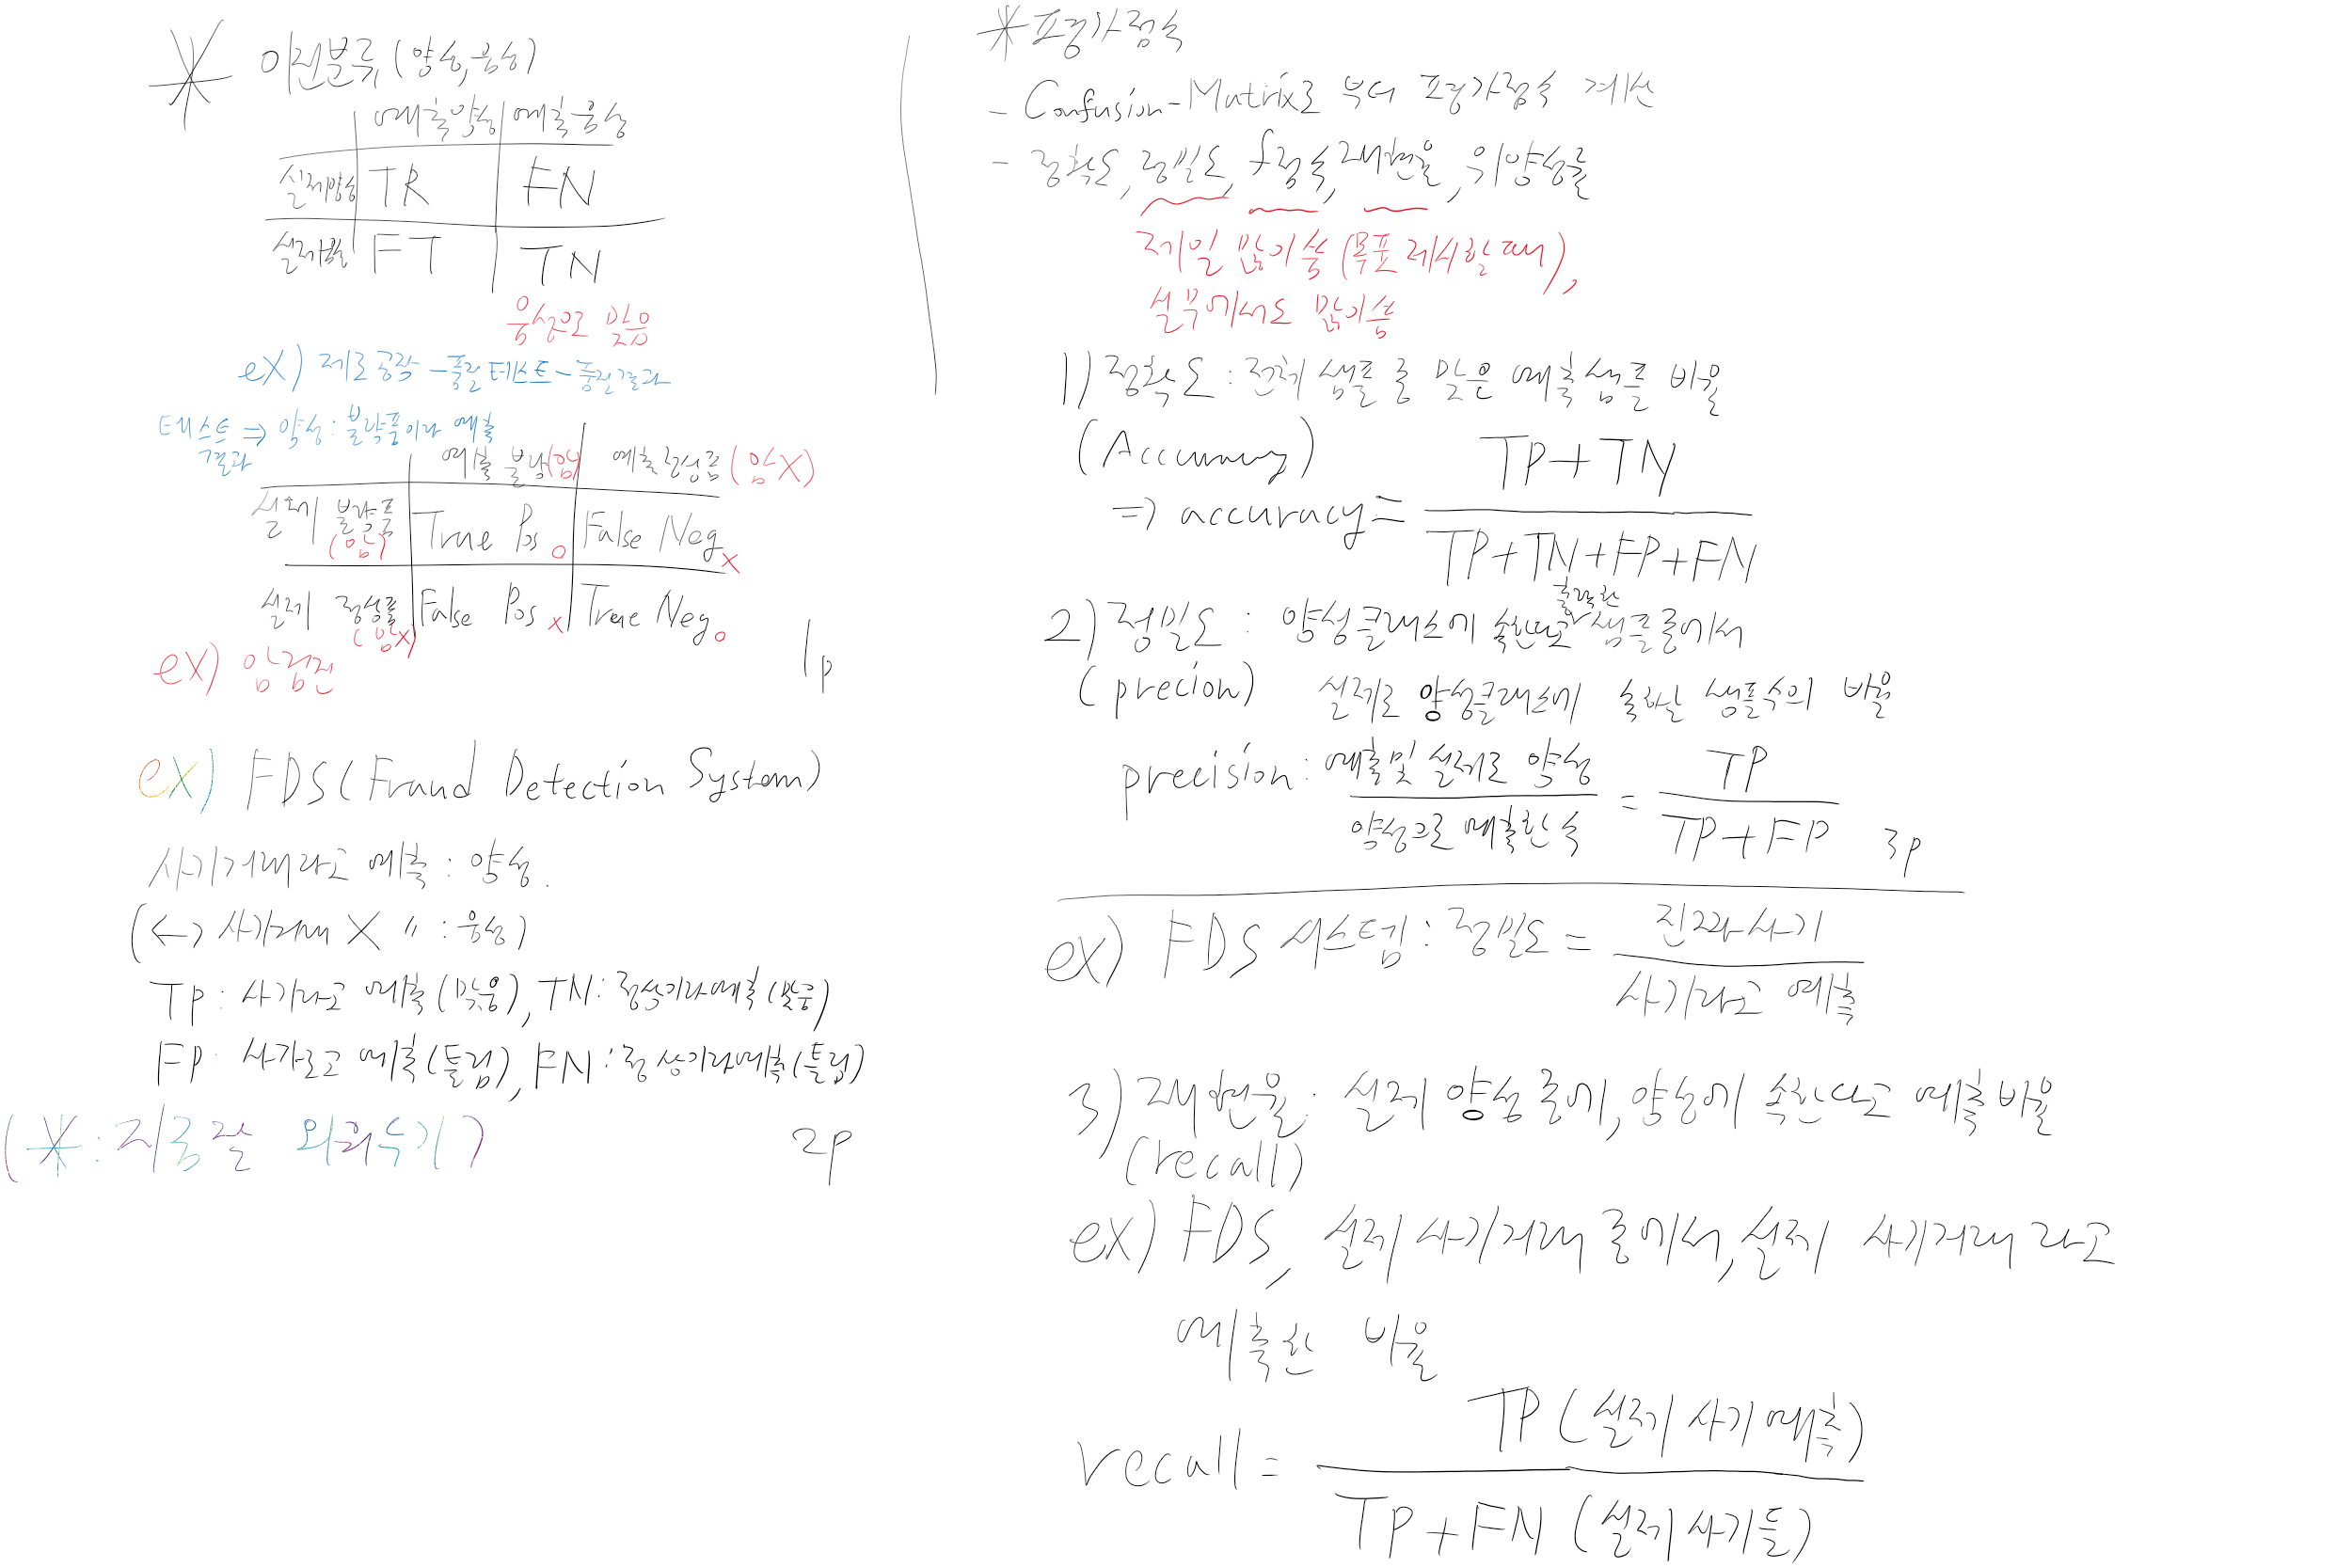 * 이진분류 (양성, 음성)
예측양성 예측음성
실제양성 TR FN
실제음성 FT TN
음성으로 맞음
ex) 제조공장 - 품질테스트 - 품질결과
테스트 결과 ⇒ 양성: 불량품이라 예측
예측 불량(암) 예측 정상품 (암X)
실제 불량품 (암) True Pos O False Neg X
실제 정상품 (암X) False Pos X True Neg O
ex) 암검진
1p
ex) FDS (Fraud Detection System)
사기거래라고 예측 : 양성.
(↔ 사기거래 X 〃 : 음성)
TP : 사기라고 예측 (맞음), TN : 정상이라예측 (맞음)
FP : 사기라고 예측 (틀림), FN : 정상이라예측 (틀림)
(* : 지금잘 외워두기)
2p
* 평가점수
- Confusion-Matrix로 부터 평가점수 계산
- 정확도, 정밀도, f점수, 재현율, 위양성률
제일 많이씀 (목표 제시할때),
실무에서도 많이씀
1) 정확도 : 전체 샘플 중 맞은 예측샘플 비율
(Accuracy)
TP+TN
⇒ accuracy =
TP+TN+FP+FN
2) 정밀도 : 양성클래스에 속한다고 출력한 샘플중에서
(precion) 실제로 양성클래스에 속하는 샘플수의 비율
precision : 예측및 실제로 양성 / 양성으로 예측한 수 = TP / TP+FP
3p
ex) FDS 시스템 : 정밀도 = 진짜사기 / 사기라고 예측
3) 재현율 : 실제 양성 중에, 양성에 속한다고 예측 비율
(recall)
ex) FDS, 실제 사기거래 중에서, 실제 사기거래 라고
예측한 비율
recall = TP (실제 사기 예측) / TP+FN (실제사기들)